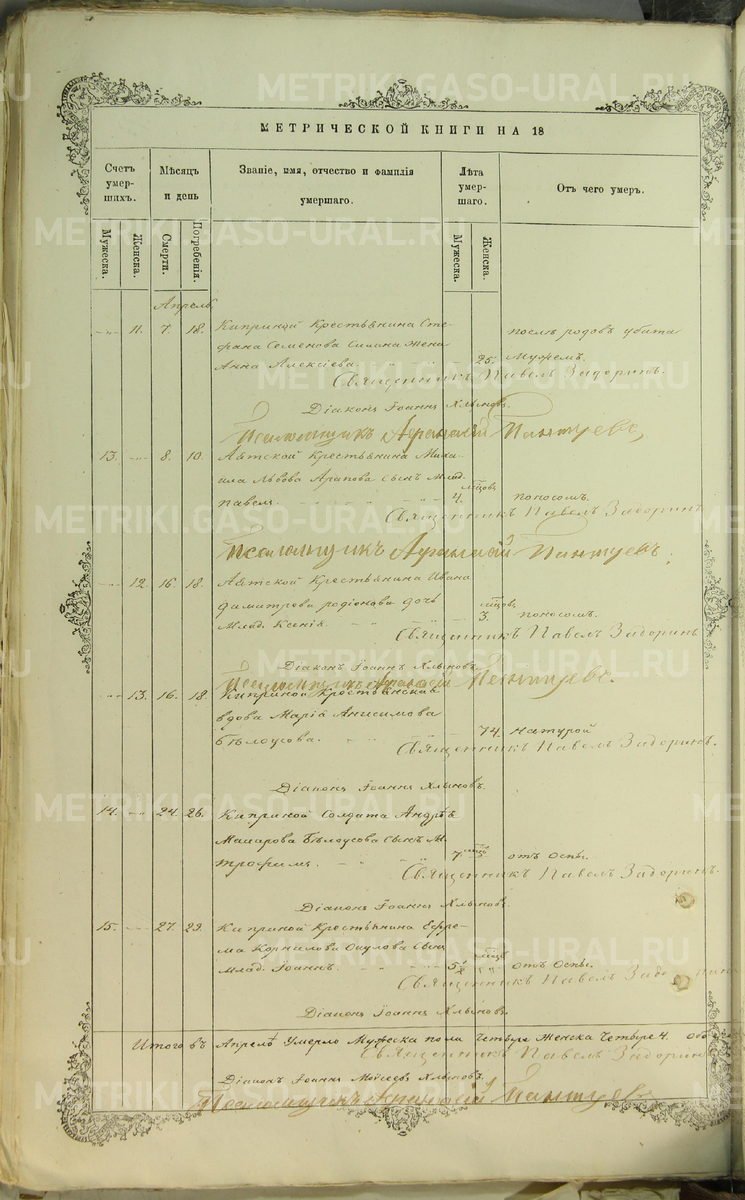 METRIKI.GASO-URAL.RU
МЕТРИЧЕСКОЙ КНИГИ НА 18
Счетъ умерших. Мѣсяцъ и день Званіе, имя, отчество и фамилія умершаго. Лѣта умершаго. Отъ чего умеръ.
Мужеска. Женска. Смерти. Погребенія. Мужеска. Женска.
Апрель
11. 7. 18. Киприной Крестьянина Сте-
фана Семенова жена
Анна Алексіева. 25.
послѣ родовъ убита
мужемъ.
Священникъ Павелъ Задоринъ.
Діаконъ Іоаннъ Хлыновъ.
Псаломщикъ Пантуевъ,
13. 8. 10. Крестьянина Миха-
ила Львова Арапова сынъ Млад.
Павелъ. 4. мѣсцовъ поносомъ.
Священникъ Павелъ Задоринъ
Псаломщикъ Пантуевъ
12. 16. 18. Крестьянина Ивана
Димитрова Родіонова дочь
Млад. Ксенія. 3. мѣсцовъ поносомъ.
Священникъ Павелъ Задоринъ
Діаконъ Іоаннъ Хлыновъ.
Псаломщикъ Пантуевъ.
13. 16. 18. Киприной Крестьянская
вдова Марія Анисимова
Бѣлоусова. 74. натурой
Священникъ Павелъ Задоринъ.
Діаконъ Іоаннъ Хлыновъ.
14. 24. 26. Киприной Солдата Андрѣя
Макарова Бѣлоусова сынъ М
трофимъ. 7. отъ оспы.
Священникъ Павелъ Задоринъ.
Діаконъ Іоаннъ Хлыновъ.
15. 27. 29. Киприной Крестьянина Ефре-
ма Корнилова Окулова сынъ
Млад. Іоаннъ. отъ Оспы.
Священникъ Павелъ
Діаконъ Іоаннъ Хлыновъ.
Итого въ Апрелѣ Умерло Мужеска пола Четыре Женска Четыре 4. обо
Священникъ Павелъ Задоринъ
Діаконъ Іоаннъ Моѵсеевъ Хлыновъ.
Псаломщикъ Пантуевъ